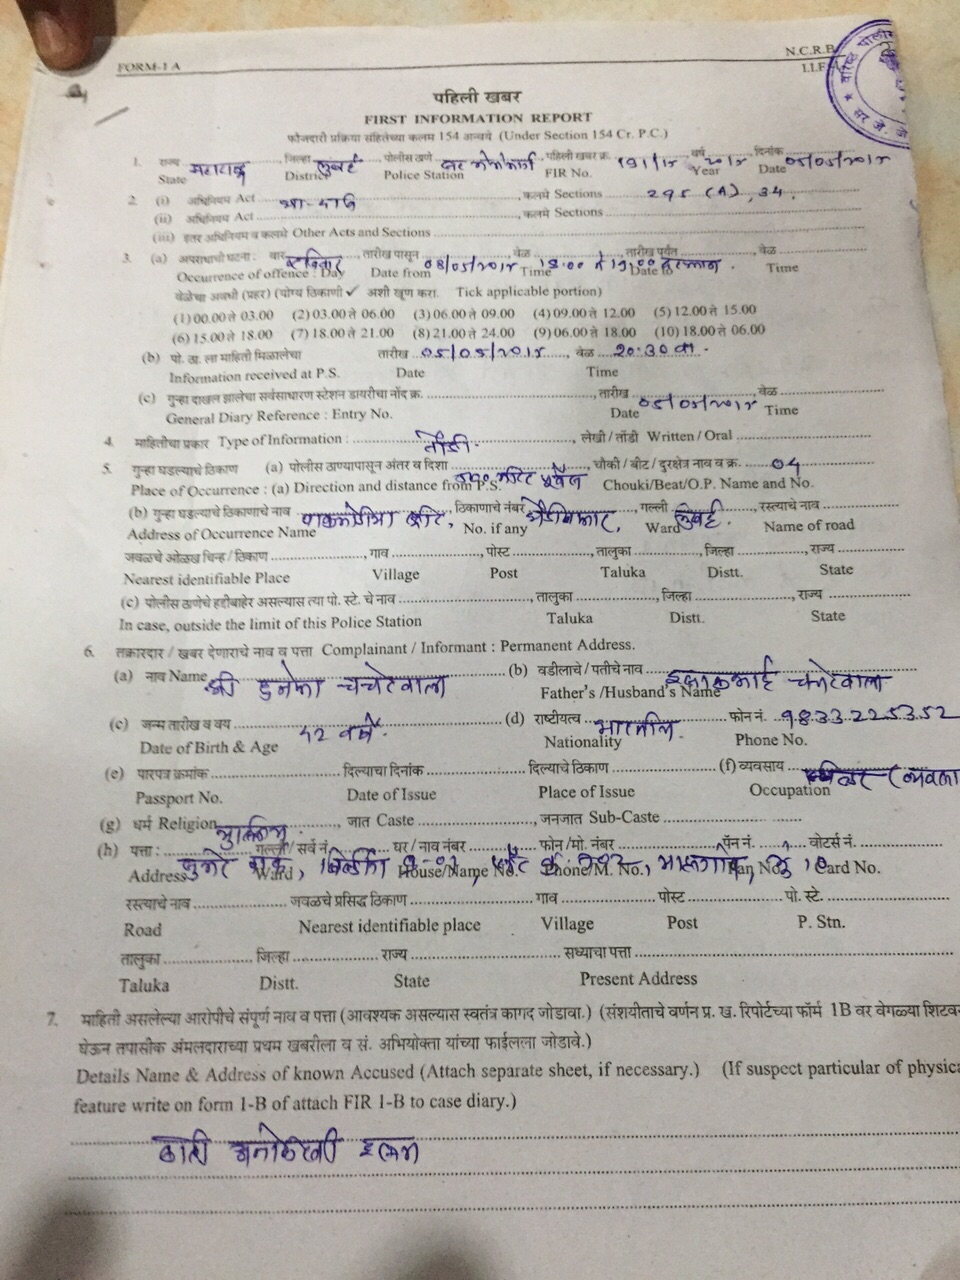 FORM-I A
N.C.R.B
I.I.F.
पहिली खबर
FIRST INFORMATION REPORT
फौजदारी प्रक्रिया संहितेच्या कलम 154 अन्वये (Under Section 154 Cr. P.C.)
1. राज्य महाराष्ट्र जिल्हा मुंबई , पोलीस ठाणे , पहिली खबर क्र. वर्ष दिनांक
State District Police Station FIR No. Year Date
2. (i) अधिनियम Act , कलमे Sections 295 (A), 34.
(ii) अधिनियम Act , कलमे Sections
(iii) इतर अधिनियम व कलमे Other Acts and Sections
3. (a) अपराधाची घटना : वार , तारीख पासून , वेळ , तारीख पर्यंत , वेळ
Occurrence of offence : Day Date from Time Date to Time
वेळेचा अवधी (प्रहर) (योग्य ठिकाणी ✓ अशी खूण करा. Tick applicable portion)
(1) 00.00 ते 03.00 (2) 03.00 ते 06.00 (3) 06.00 ते 09.00 (4) 09.00 ते 12.00 (5) 12.00 ते 15.00
(6) 15.00 ते 18.00 (7) 18.00 ते 21.00 (8) 21.00 ते 24.00 (9) 06.00 ते 18.00 (10) 18.00 ते 06.00
(b) पो. ठा. ला माहिती मिळालेचा तारीख , वेळ 20:30 वा.
Information received at P.S. Date Time
(c) गुन्हा दाखल झालेचा सर्वसाधारण स्टेशन डायरीचा नोंद क्र. , तारीख , वेळ
General Diary Reference : Entry No. Date Time
4. माहितीचा प्रकार Type of Information : तोंडी. , लेखी / तोंडी Written / Oral
5. गुन्हा घडल्याचे ठिकाण (a) पोलीस ठाण्यापासून अंतर व दिशा , चौकी / बीट / दुरक्षेत्र नाव व क्र. 04
Place of Occurrence : (a) Direction and distance from P.S. Chouki/Beat/O.P. Name and No.
(b) गुन्हा घडल्याचे ठिकाणाचे नाव , ठिकाणाचे नंबर , गल्ली मुंबई. , रस्त्याचे नाव
Address of Occurrence Name No. if any Ward Name of road
जवळचे ओळख चिन्ह / ठिकाण , गाव , पोस्ट , तालुका , जिल्हा , राज्य
Nearest identifiable Place Village Post Taluka Distt. State
(c) पोलीस ठाणेचे हद्दीबाहेर असल्यास त्या पो. स्टे. चे नाव , तालुका , जिल्हा , राज्य
In case, outside the limit of this Police Station Taluka Distt. State
6. तक्रारदार / खबर देणाराचे नाव व पत्ता Complainant / Informant : Permanent Address.
(a) नाव Name श्री (b) वडीलाचे / पतीचे नाव
Father's /Husband's Name
(c) जन्म तारीख व वय 42 वर्षे. (d) राष्टीयत्व भारतीय. फोन नं. 9833225352
Date of Birth & Age Nationality Phone No.
(e) पारपत्र क्रमांक दिल्याचा दिनांक दिल्याचे ठिकाण (f) व्यवसाय
Passport No. Date of Issue Place of Issue Occupation
(g) धर्म Religion , जात Caste , जनजात Sub-Caste
(h) पत्ता : गल्ली / सर्वे नं. घर / नाव नंबर फोन/मो. नंबर पॅन नं. वोटर्स नं.
Address Ward House/Name No. Phone/M. No. Pan No. Card No.
रस्त्याचे नाव जवळचे प्रसिद्ध ठिकाण गाव पोस्ट पो. स्टे.
Road Nearest identifiable place Village Post P. Stn.
तालुका जिल्हा राज्य सध्याचा पत्ता
Taluka Distt. State Present Address
7. माहिती असलेल्या आरोपीचे संपूर्ण नाव व पत्ता (आवश्यक असल्यास स्वतंत्र कागद जोडावा.) (संशयीताचे वर्णन प्र. ख. रिपोर्टच्या फॉर्म 1B वर वेगळ्या शिटवर
घेऊन तपासीक अंमलदाराच्या प्रथम खबरीला व सं. अभियोक्ता यांच्या फाईलला जोडावे.)
Details Name & Address of known Accused (Attach separate sheet, if necessary.) (If suspect particular of physica
feature write on form 1-B of attach FIR 1-B to case diary.)
काही अनोळखी इसम